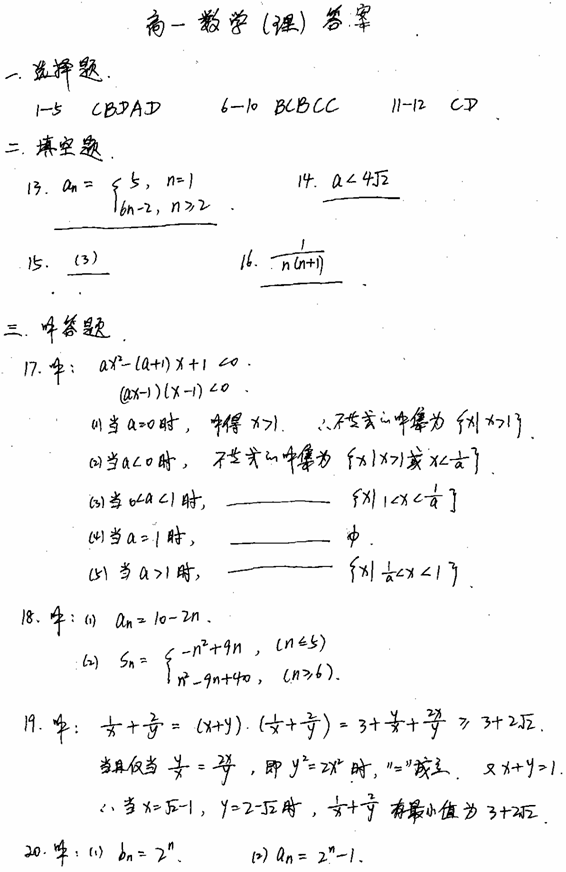 高一数学(理)答案
一.选择题.
1-5 CBDAD 6-10 BCBCC 11-12 CD.
二.填空题.
13. an = { 5, n=1
6n-2, n≥2 .
14. a<4√2
15. (3) 16. 1/n(n+1) .
三.解答题.
17.解: ax²-(a+1)x+1<0.
(ax-1)(x-1)<0.
(1)当a=0时, 解得x>1. ∴不等式的解集为{x|x>1}.
(2)当a<0时, 不等式的解集为{x|x>1或x<1/a}.
(3)当0<a<1时, ———— {x|1<x<1/a}
(4)当a=1时, ———— φ.
(5)当a>1时, ———— {x|1/a<x<1}.
18.解:(1) an=10-2n.
(2) Sn = { -n²+9n, (n≤5)
n²-9n+40, (n≥6).
19.解: 1/x+2/y=(x+y)·(1/x+2/y)=3+y/x+2x/y≥3+2√2.
当且仅当 y/x=2x/y, 即y²=2x²时, "="成立. 又x+y=1.
∴当x=√2-1, y=2-√2时, 1/x+2/y有最小值为3+2√2.
20.解:(1) bn=2ⁿ. (2) an=2ⁿ-1.